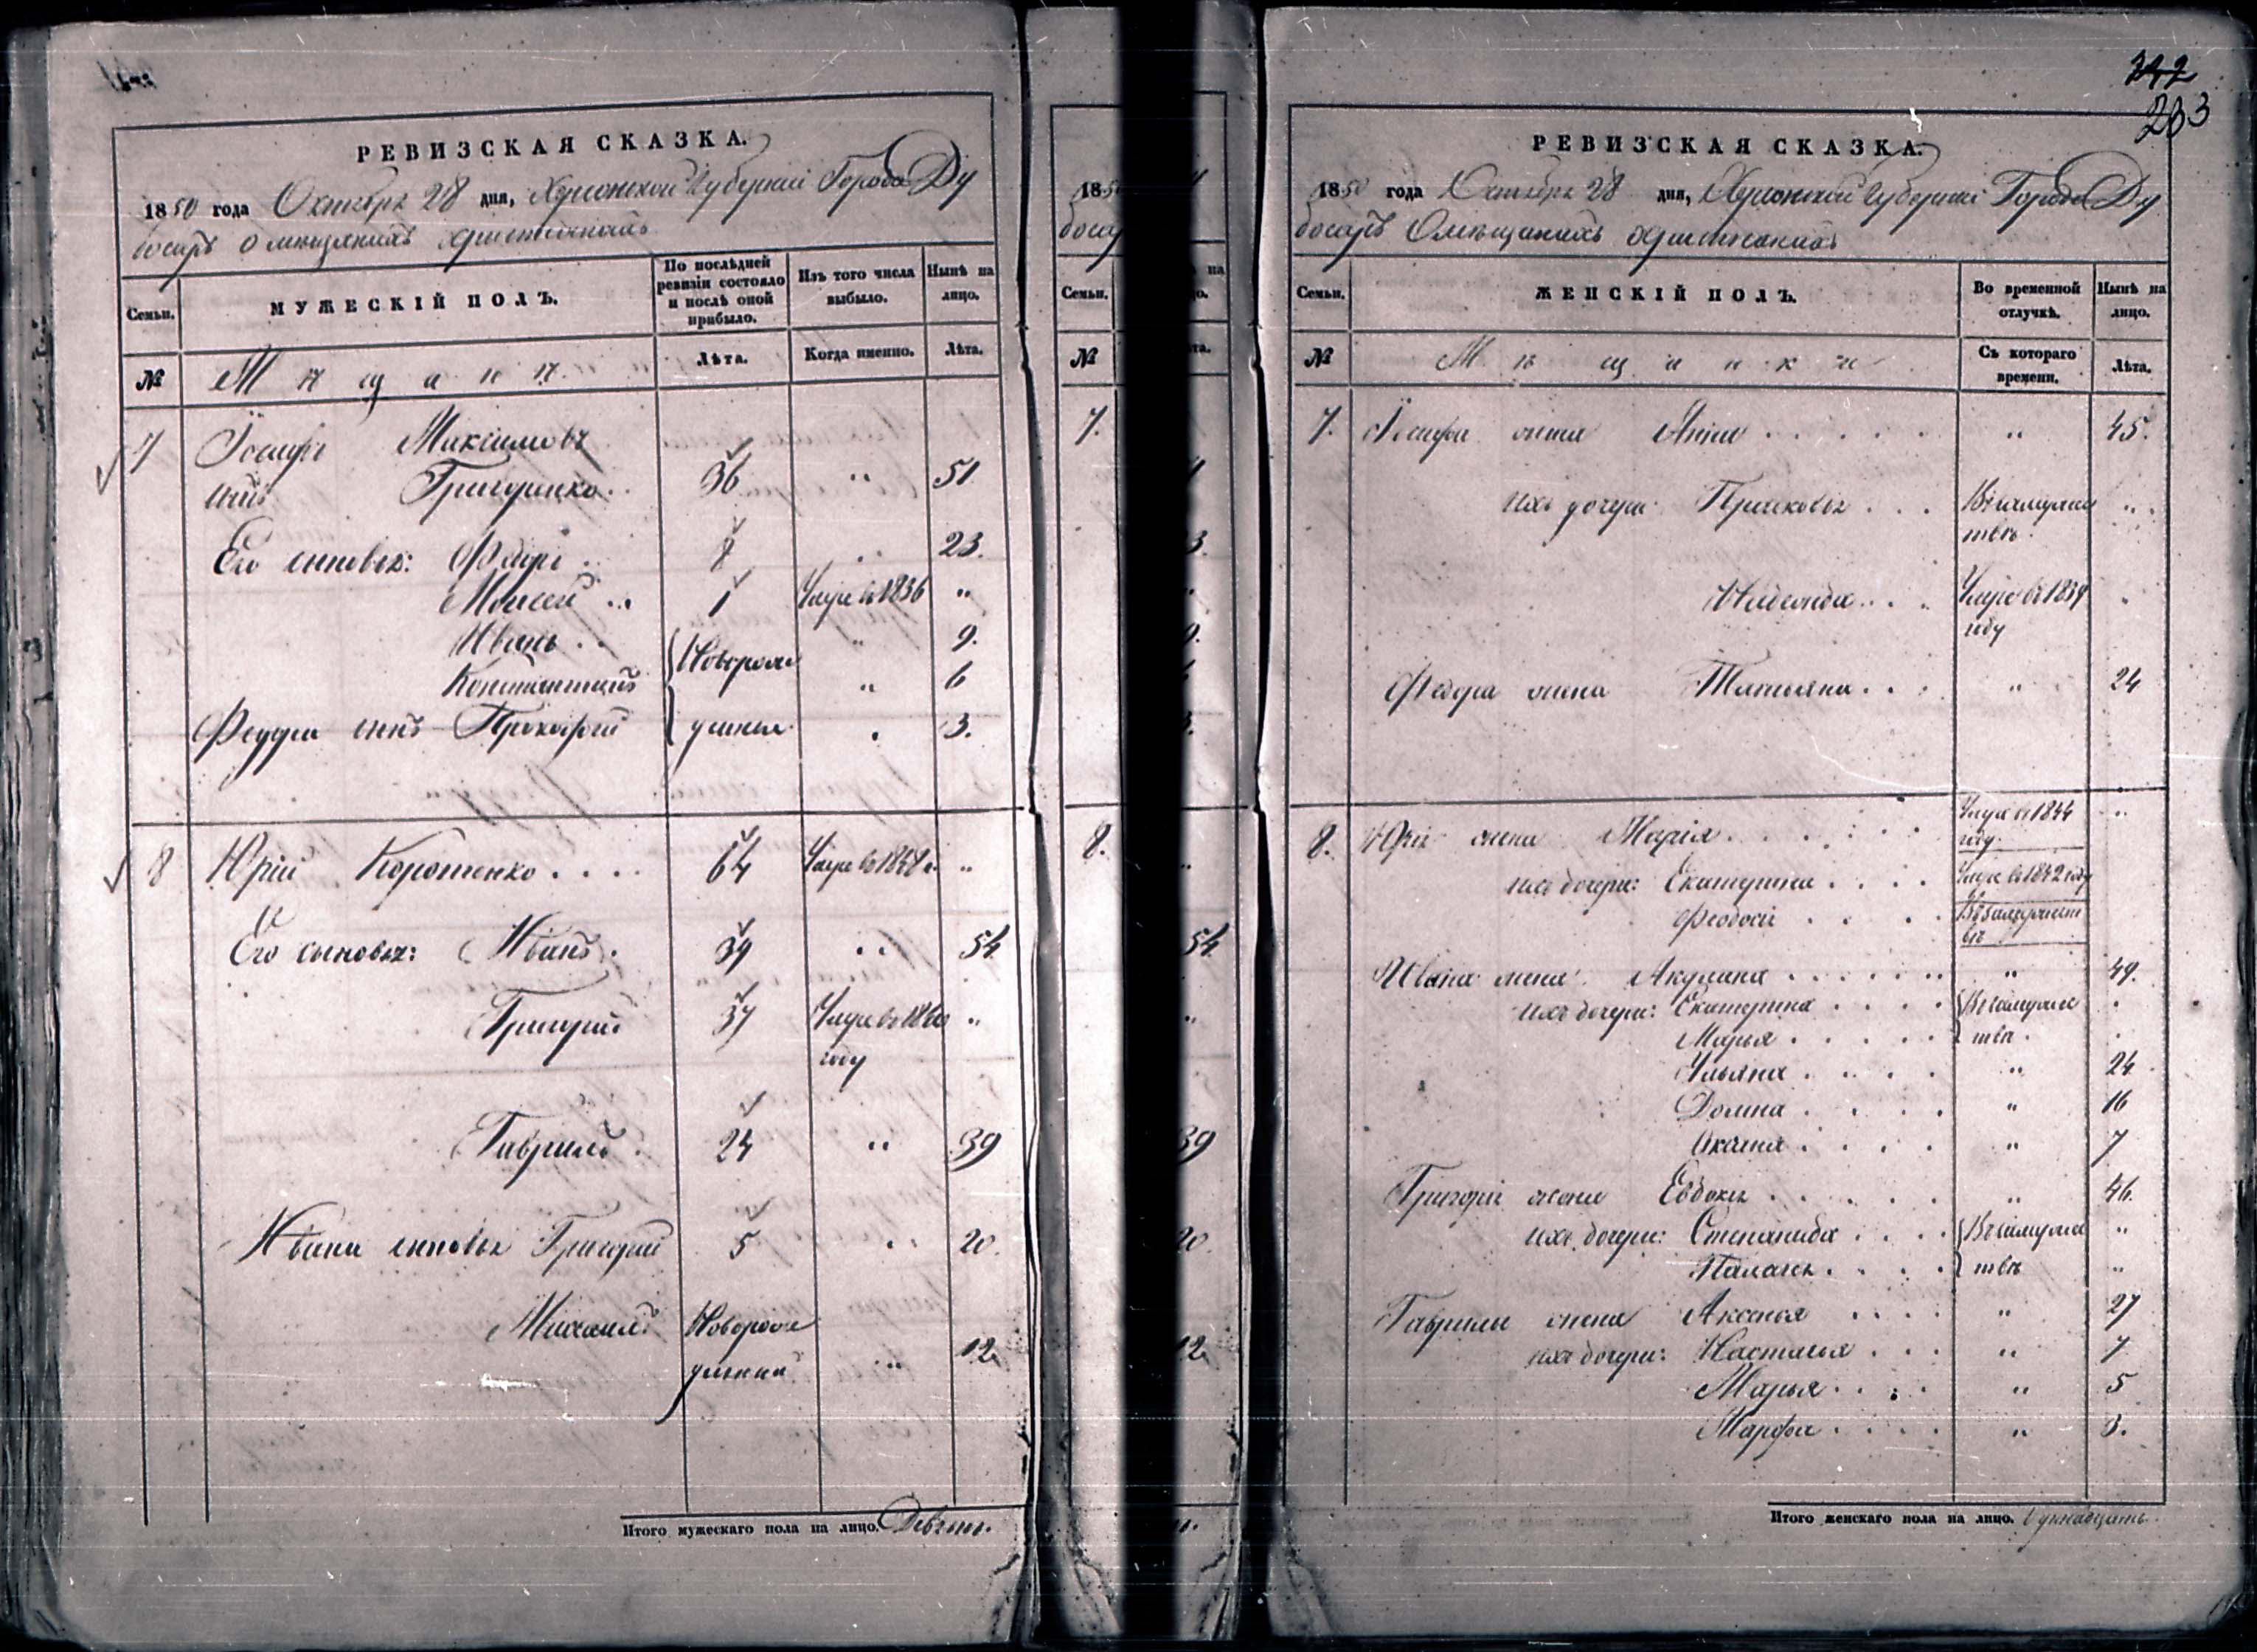 РЕВИЗСКАЯ СКАЗКА.
1850 года Октября 28 дня, Херсонской Губерніи Города Ду
босаръ О мещанахъ христіанахъ
Семьи.
МУЖЕСКІЙ ПОЛЪ.
По послѣдней ревизіи состояло и послѣ оной прибыло.
Изъ того числа выбыло.
Нынѣ на лицо.
№
Мѣщанѣ
Лѣта.
Когда именно.
Лѣта.
7 Іосифъ Максимовъ
сынъ Григоренко .. 36 " 51
Его сыновья: Федоръ .. 8 .. 23.
Моисей ... 1 Умре въ 1836 "
Иванъ .. Новорож " 9.
Константинъ " 6
Федора сынъ Прокофій денные . 3.
8 Юрій Коротенко .... 64 Умре въ "
Его сыновья: Иванъ . 39 .. 54
Григорій 37 Умре въ году "
Гаврилъ . 24 " 39
Ивана сыновья Григорій 5 .. 20.
Михаилъ Новорож
денный " 12
Итого мужескаго пола на лицо. Девять.
1850
босар
Семьи.
№
7.
8.
342
283
РЕВИЗСКАЯ СКАЗКА.
1850 года Октября 28 дня, Херсонской Губерніи Города Ду
босаръ О мѣщанахъ христіанахъ
Семьи.
ЖЕНСКІЙ ПОЛЪ.
Во временной отлучкѣ.
Нынѣ на лицо.
№
Мѣщанки
Съ котораго времени.
Лѣта.
7. Іосифа жена Анна ..... " 45.
ихъ дочери: Прасковья ... Въ замуже
ствѣ. "
Умре въ 1839
году
Федора жена Татьяна ... " 24
8. Юрія жена Марія ..... Умре въ 1844
году. "
ихъ дочери: Екатерина .... Умре въ 1842 году
Феодосія .... Въ замужест
вѣ
Ивана жена Акулина ...... " 49.
ихъ дочери: Екатерина .... Въ замуже .
Марья ..... ствѣ. .
Ульяна .... " 24
Домна .... " 16
Аксинія .... " 7
Григорія жена Евдокія ..... " 46.
ихъ дочери: Степанида .... Въ замуже "
.... ствѣ "
Гаврилы жена Аксенья .... " 27
ихъ дочери: Настасья ... " 7
Марья .... " 5
Марфа .... " 3.
Итого женскаго пола на лицо.